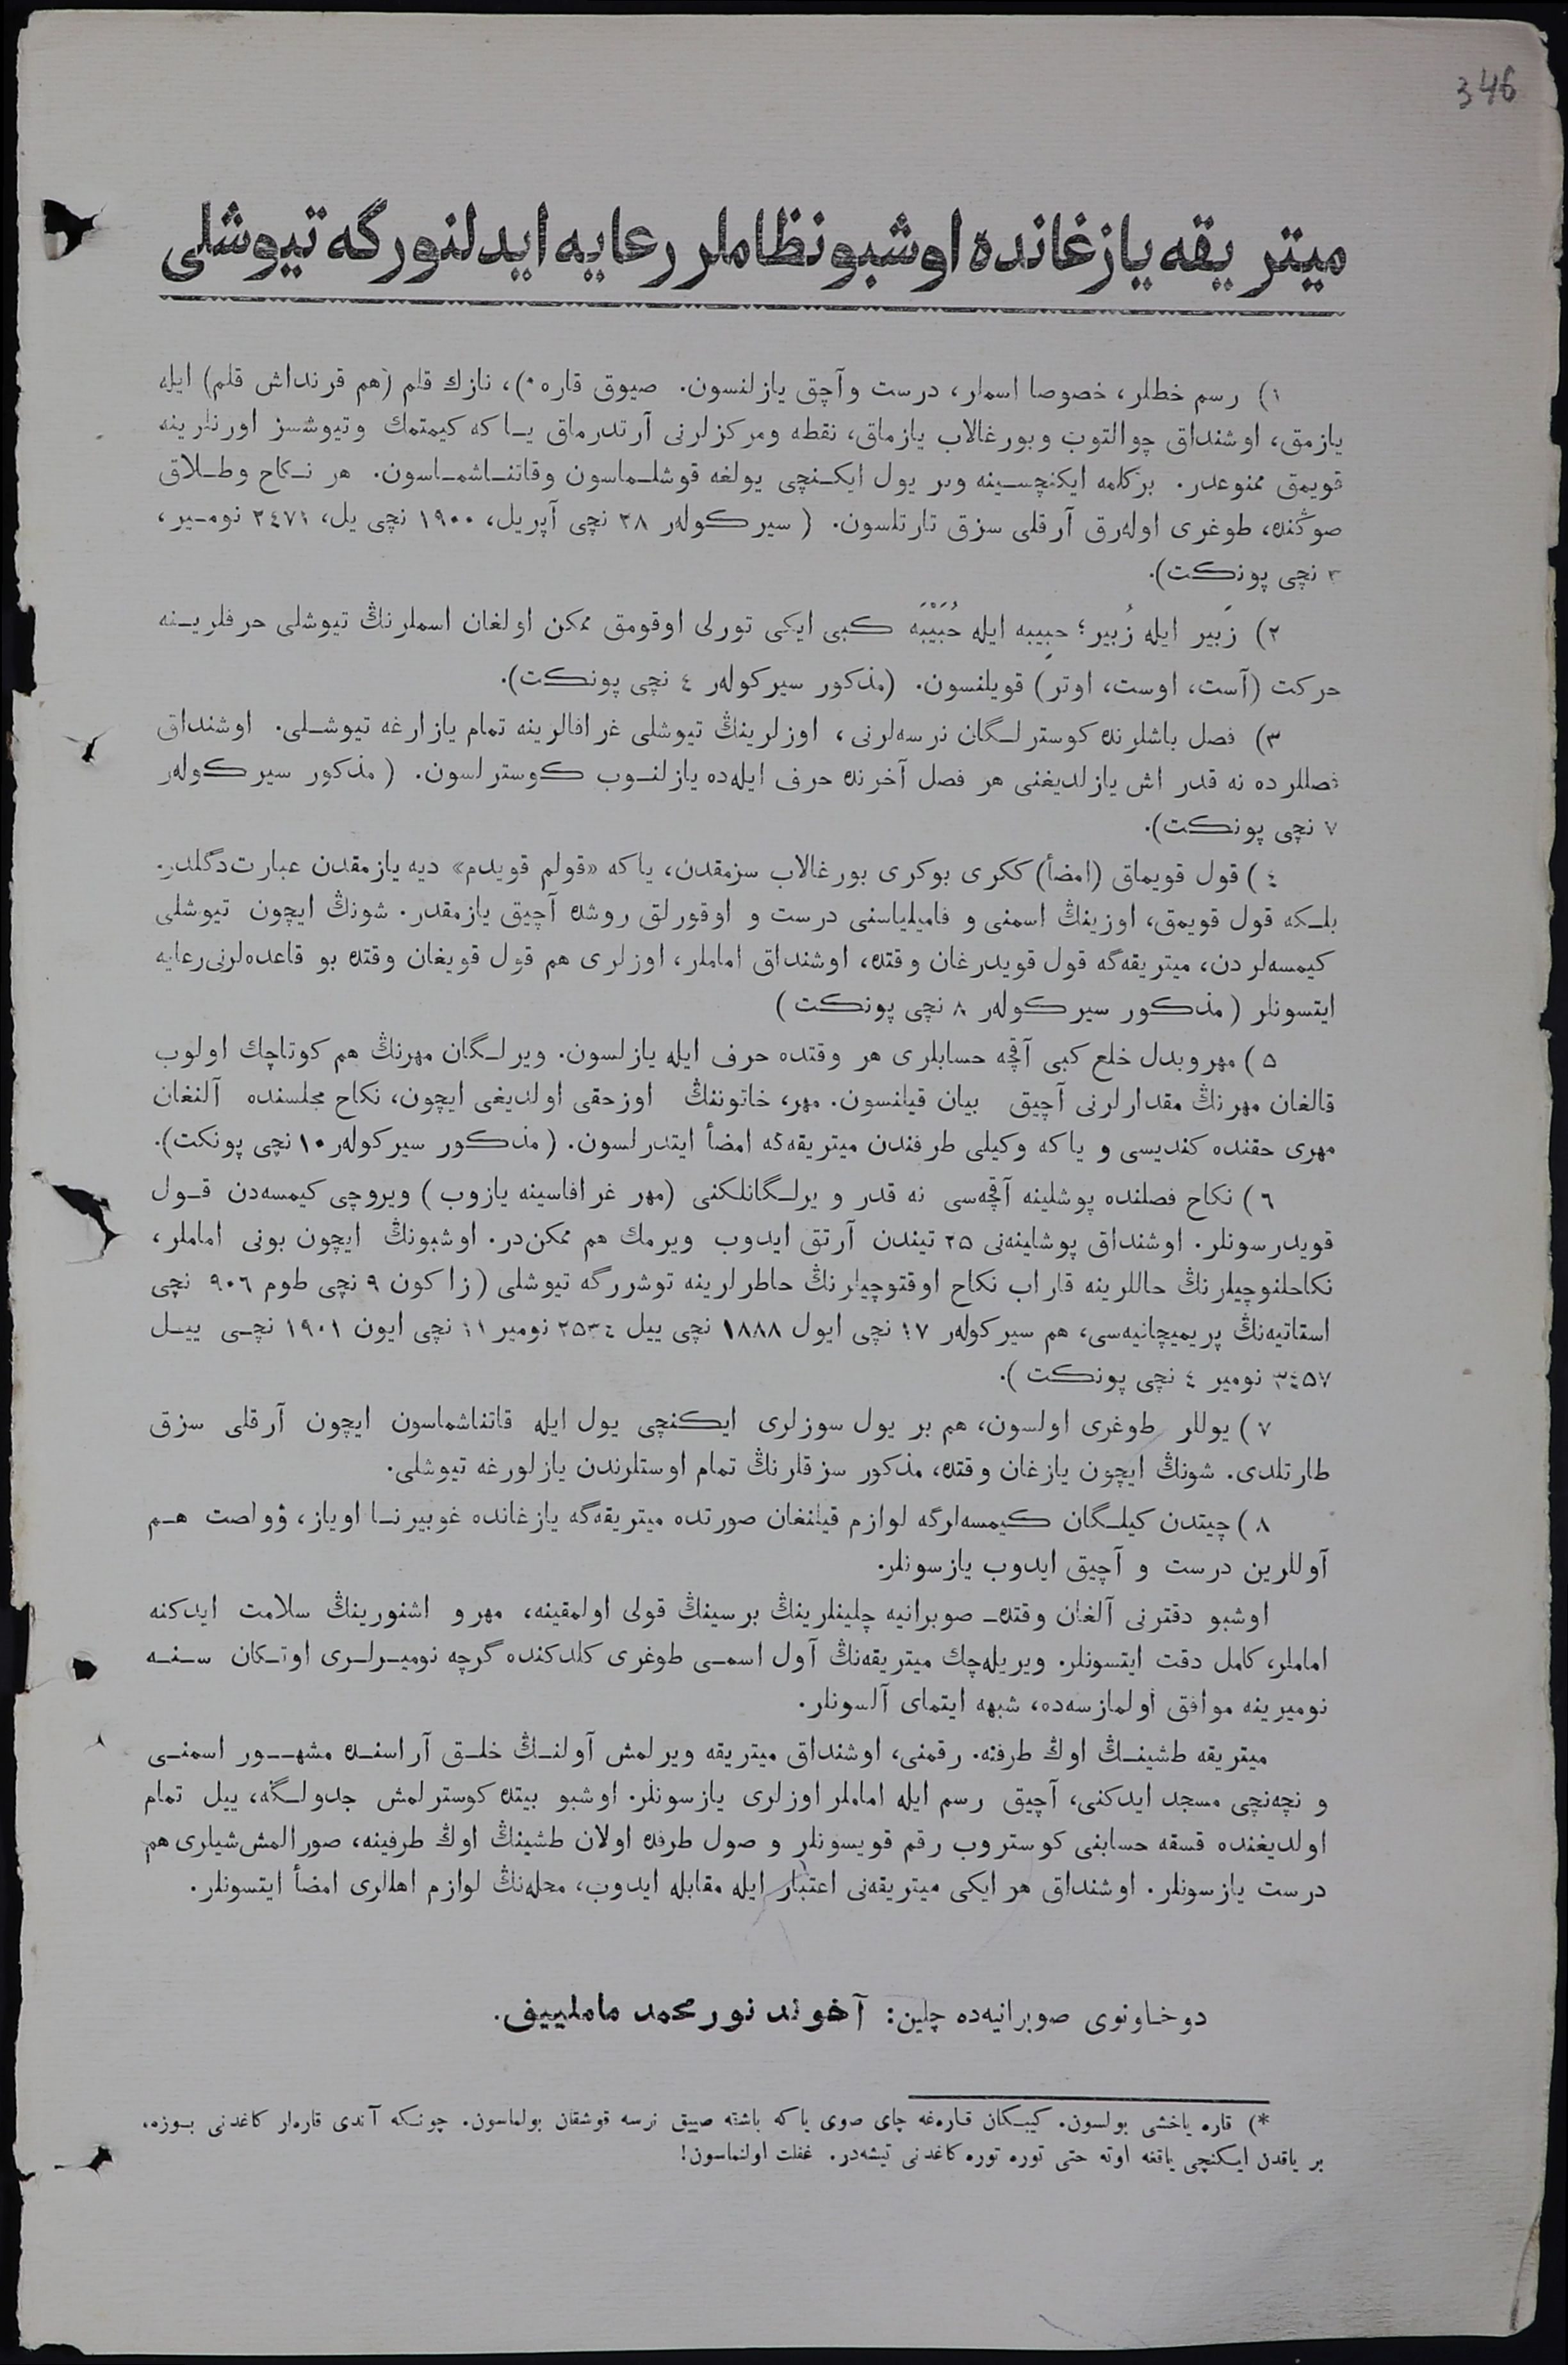 346
ميتريقه يازغانده اوشبو نظاملر رعايه ايدلنورگه تيوشلى
١) رسم خطلر، خصوصا اسملر، درست وآچق يازلنسون. صيوق قاره*)، نازك قلم (هم قرنداش قلم) ايله
يازمق، اوشنداق چوالتوب وبورغالاب يازماق، نقطه ومركزلرنى آرتدرماق يـاكه كيمتمك وتيوشسز اورنلرينه
قويمق ممنوعدر. بركلمه ايكنچسـينه وبر يول ايكـنچى يولغه قوشلـماسون وقاتنـاشمـاسون. هر نـكاح وطـلاق
صوڭنده، طوغرى اولەرق آرقلى سزق تارتلسون. (سيركولەر ٢٨ نچى آپريل، ١٩٠٠ نچى يل، ٢٤٧١ نومـير،
٣ نچى پونكت).
٢) زَبير ايله زُبير؛ حبِيبه ايله حُبَيْبَه كبى ايكى تورلى اوقومق ممكن اولغان اسملرنڭ تيوشلى حرفلريـنه
حركت (آست، اوست، اوتر) قويلنسون. (مذكور سيركولەر ٤ نچى پونكت).
٣) فصل باشلرنده كوسترلـگان نرسەلرنى، اوزلرينڭ تيوشلى غرافالرينه تمام يازارغه تيوشـلى. اوشنداق
فصللرده نه قدر اش يازلديغنى هر فصل آخرنده حرف ايلەده يازلنـوب كوسترلسون. (مذكور سيركولەر
٧ نچى پونكت).
٤) قول قويماق (امضأ) ككرى بوكرى بورغالاب سزمقدن، ياكه «قولم قويدم» ديه يازمقدن عبارت دگلدر.
بلـكه قول قويمق، اوزينڭ اسمنى و فاميلياسنى درست و اوقورلق روشده آچيق يازمقدر. شونڭ ايچون تيوشلى
كيمسەلردن، ميتريقەگه قول قويدرغان وقتده، اوشنداق اماملر، اوزلرى هم قول قويغان وقتده بو قاعدەلرنى رعايه
ايتسونلر (مذكور سيركولەر ٨ نچى پونكت)
٥) مهر وبدل خلع كبى آقچه حسابلرى هر وقتده حرف ايله يازلسون. ويرلـگان مهرنڭ هم كوتاچك اولوب
قالغان مهرنڭ مقدارلرنى آچيق بيان قيلنسون. مهر، خاتوننڭ اوزحقى اولديغى ايچون، نكاح مجلسنده آلنغان
مهرى حقنده كنديسى و ياكه وكيلى طرفندن ميتريقەگه امضأ ايتدرلسون. (مذكور سيركولەر ١٠ نچى پونكت).
٦) نكاح فصلنده پوشلينه آقچەسى نه قدر ويرلـگانلكنى (مهر غرافاسينه يازوب) ويروچى كيمسەدن قـول
قويدرسونلر. اوشنداق پوشلينەنى ٢٥ تيندن آرتق ايدوب ويرمك هم ممكن در. اوشبونڭ ايچون بونى اماملر،
نكاحلنوچيلرنڭ حاللرينه قاراب نكاح اوقتوچيلرنڭ خاطرلرينه توشررگه تيوشلى (زاكون ٩ نچى طوم ٩٠٦ نچى
استاتيەنڭ پريميچانيەسى، هم سيركولەر ١٧ نچى ايول ١٨٨٨ نچى ييل ٢٥٣٤ نومير ١١ نچى ايون ١٩٠١ نچـى ييـل
٣٤٥٧ نومير ٤ نچى پونكت).
٧) يوللر طوغرى اولسون، هم بر يول سوزلرى ايكنچى يول ايله قاتناشماسون ايچون آرقلى سزق
طارتلدى. شونڭ ايچون يازغان وقتده، مذكور سزقلرنڭ تمام اوستلرندن يازلورغه تيوشلى.
٨) چيتدن كيلـگان كيمسەلرگه لوازم قيلنغان صورتده ميتريقەگه يازغانده غوبيرنـا اوياز، ۋولصت هـم
آوللرين درست و آچيق ايدوب يازسونلر.
اوشبو دفترنى آلغان وقتدهـ صوبرانيه چلينلرينڭ برسينڭ قولى اولمقينه، مهر و اشنورينڭ سلامت ايدكنه
اماملر، كامل دقت ايتسونلر. ويريلەچك ميتريقەنڭ آول اسمـى طوغرى كلدكنده گرچه نوميـرلـرى اوتـكان سـنـه
نوميرينه موافق اولمازسەده، شبهه ايتماى آلسونلر.
ميتريقه طشينـڭ اوڭ طرفنه. رقمنى، اوشنداق ميتريقه ويرلمش آولنـڭ خلـق آراسنـده مشهــور اسمنـى
و نچەنچى مسجد ايدكنى، آچيق رسم ايله اماملر اوزلرى يازسونلر. اوشبو بيتده كوسترلمش جدولـگه، ييل تمام
اولديغنده قسقه حسابنى كوستروب رقم قويسونلر و صول طرفده اولان طشينڭ اوڭ طرفينه، صورالمش شيلرى هم
درست يازسونلر. اوشنداق هر ايكى ميتريقەنى اعتبار ايله مقابله ايدوب، محلەنڭ لوازم اهللرى امضأ ايتسونلر.
دوخـاونوى صوبرانيەده چلين: آخوند نورمحمد ماملييف.
*) قاره ياخشى بولسون. كيبـكان قـارەغه چاى صوى ياكه باشقه صييق نرسه قوشقان بولماسون. چونـكه آندى قارەلر كاغدنى بـوزه،
بر ياقدن ايـكنچى ياقغه اوته حتى توره توره كاغدنى تيشەدر. غفلت اولنماسون!